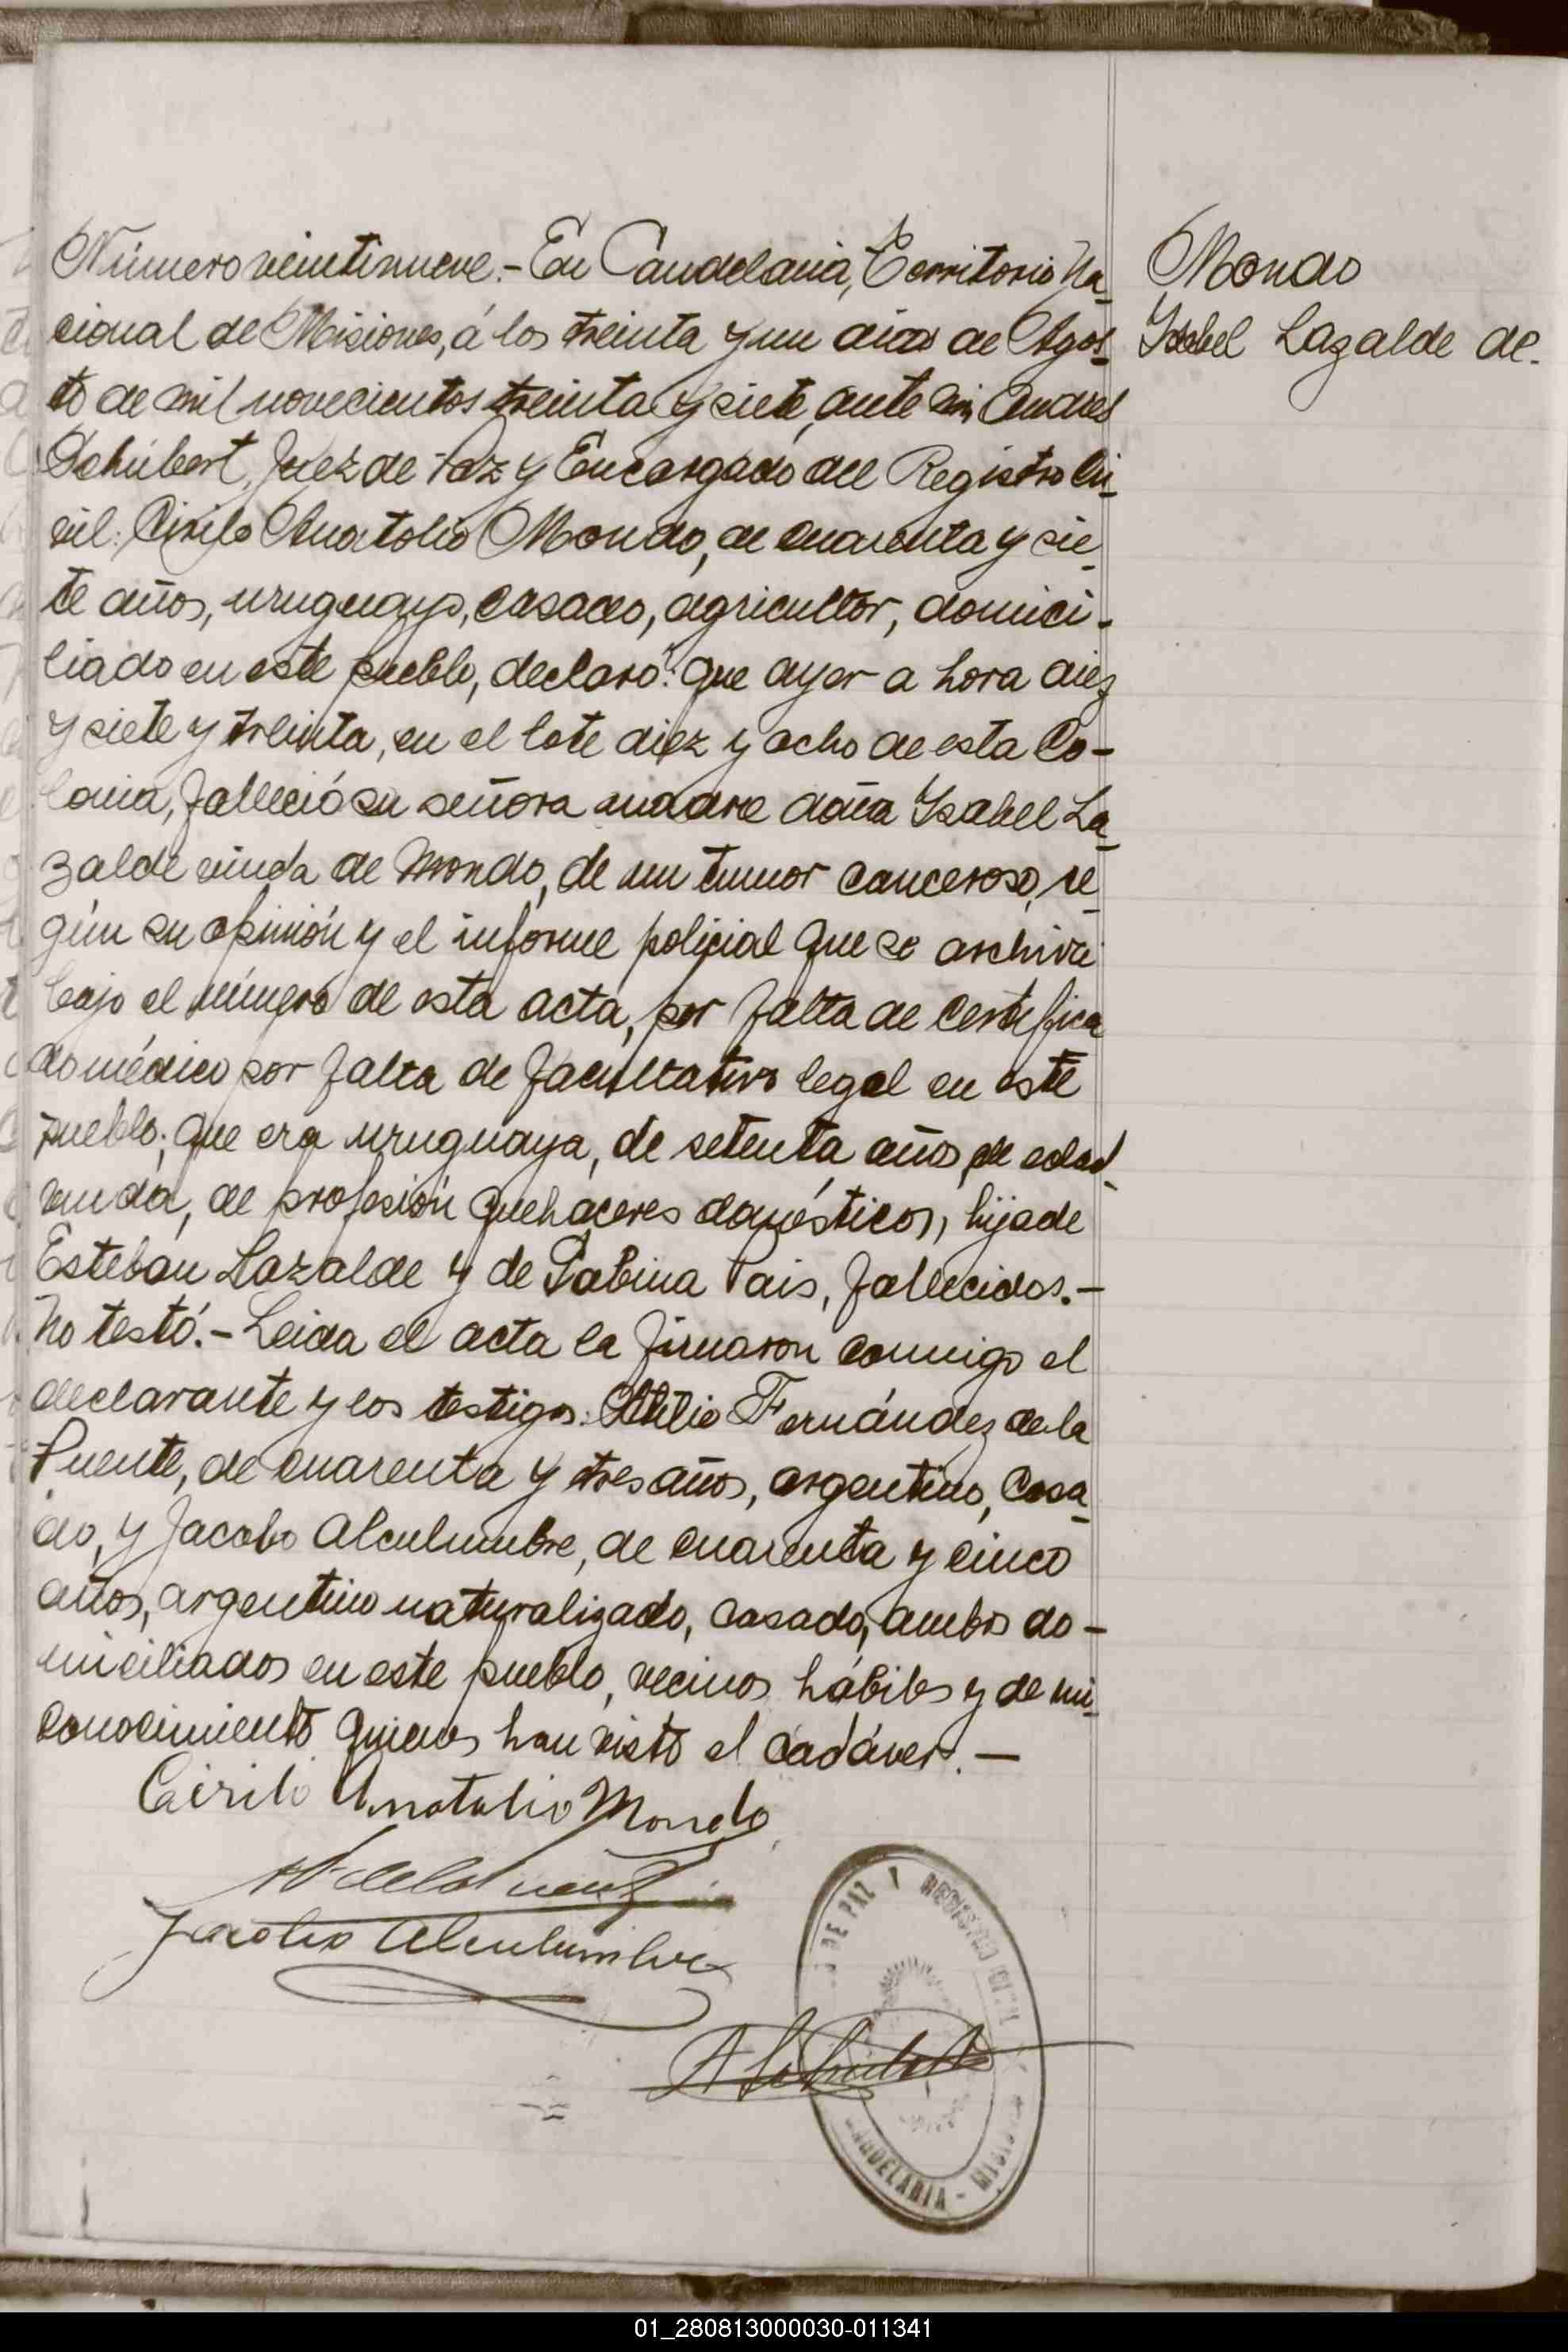 Número veintinueve.- En Candelaria, Territorio Na-
cional de Misiones, á los treinta y un dias de Agos-
to de mil novecientos treinta y siete, ante mi Andres
Schubert, Juez de Paz y Encargado del Registro Ci-
vil: Cirilo Anatolio Mondo, de cuarenta y sie-
te años, uruguayo, casado, agricultor, domici-
liado en este pueblo, declaró: que ayer a hora diez
y siete y treinta, en el lote diez y ocho de esta Co-
lonia, falleció su señora madre doña Ysabel La-
zalde viuda de Mondo, de un tumor canceroso, se-
gún su opinión y el informe policial que se archiva
bajo el número de esta acta, por falta de certifica
do médico por falta de facultativo legal en este
pueblo; que era uruguaya, de setenta años de edad,
viuda, de profesión quehaceres domésticos, hija de
Esteban Lazalde y de Sabina Pais, fallecidos.-
No testó.- Leida el acta la firmaron conmigo el
declarante y los testigos: Atilio Fernández de la
Puente, de cuarenta y tres años, argentino, casa-
do, y Jacobo Alculumbre, de cuarenta y cinco
años, argentino naturalizado, casado, ambos do-
miciliados en este pueblo, vecinos hábiles y de mi
conocimiento quienes han visto el cadáver.-
Cirilo Anatolio Mondo
AF de la Puente
Jacobo Alculumbre
A Schubert
DE PAZ Y REGISTRO CIVIL
CANDELARIA - MISIONES
Mondo
Ysabel Lazalde de.
01_280813000030-011341